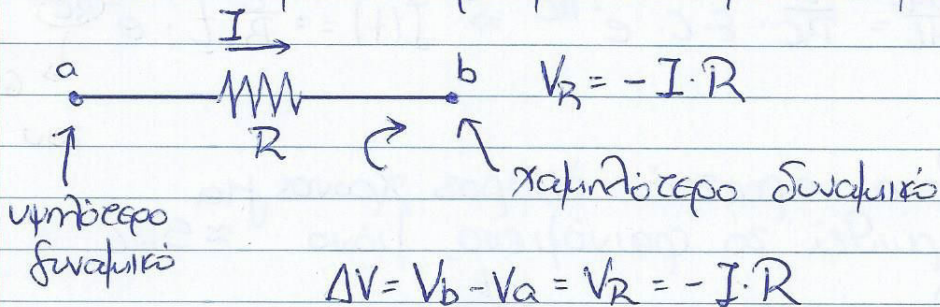 I
a
b
V_R = - I · R
R
χαμηλότερο δυναμικό
υψηλότερο
δυναμικό
ΔV = V_b - V_a = V_R = - I · R